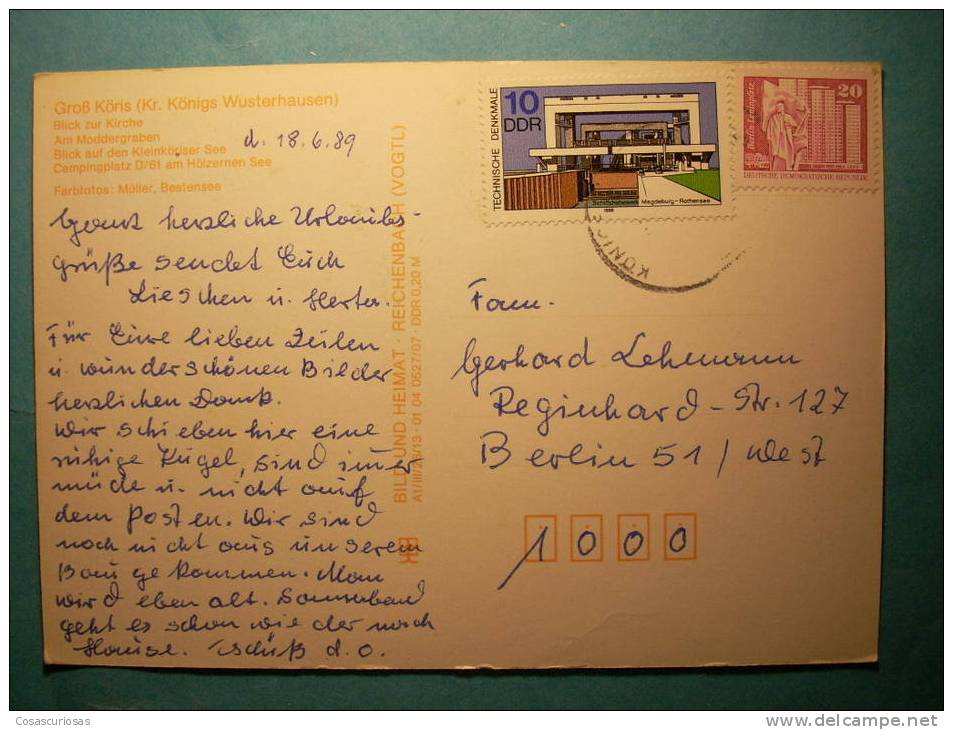 Groß Köris (Kr. Königs Wusterhausen)
Blick zur Kirche
Am Moddergraben
Blick auf den Kleinköriser See
Campingplatz D/61 am Hölzernen See
Farbfotos: Möller, Bestensee
d. 18.6.89
Ganz herzliche Urlaubs-
grüße sendet Euch
Lieschen u. Herta.
Für Eure lieben Zeilen
u. wunderschönen Bilder
herzlichen Dank.
Wir schieben hier eine
ruhige Kugel, sind immer
müde u. nicht auf
dem Posten. Wir sind
noch nicht aus unserem
Bau gekommen. Man
wird eben alt. Sonnabend
geht es schon wieder nach
Hause. Tschüß d. O.
BILD UND HEIMAT · REICHENBACH (VOGTL)
A1/III/26/13 · 01 04 0527/07 · DDR 0,20 M
TECHNISCHE DENKMALE
10
DDR
Schiffshebewerk Magdeburg-Rothensee
1988
Berlin-Leninplatz
20
DEUTSCHE DEMOKRATISCHE REPUBLIK
KÖNIGS
Fam.
Gerhard Lehmann
Reginhard-Str. 127
Berlin 51 / West
1000
Cosascuriosas
www.delcampe.net